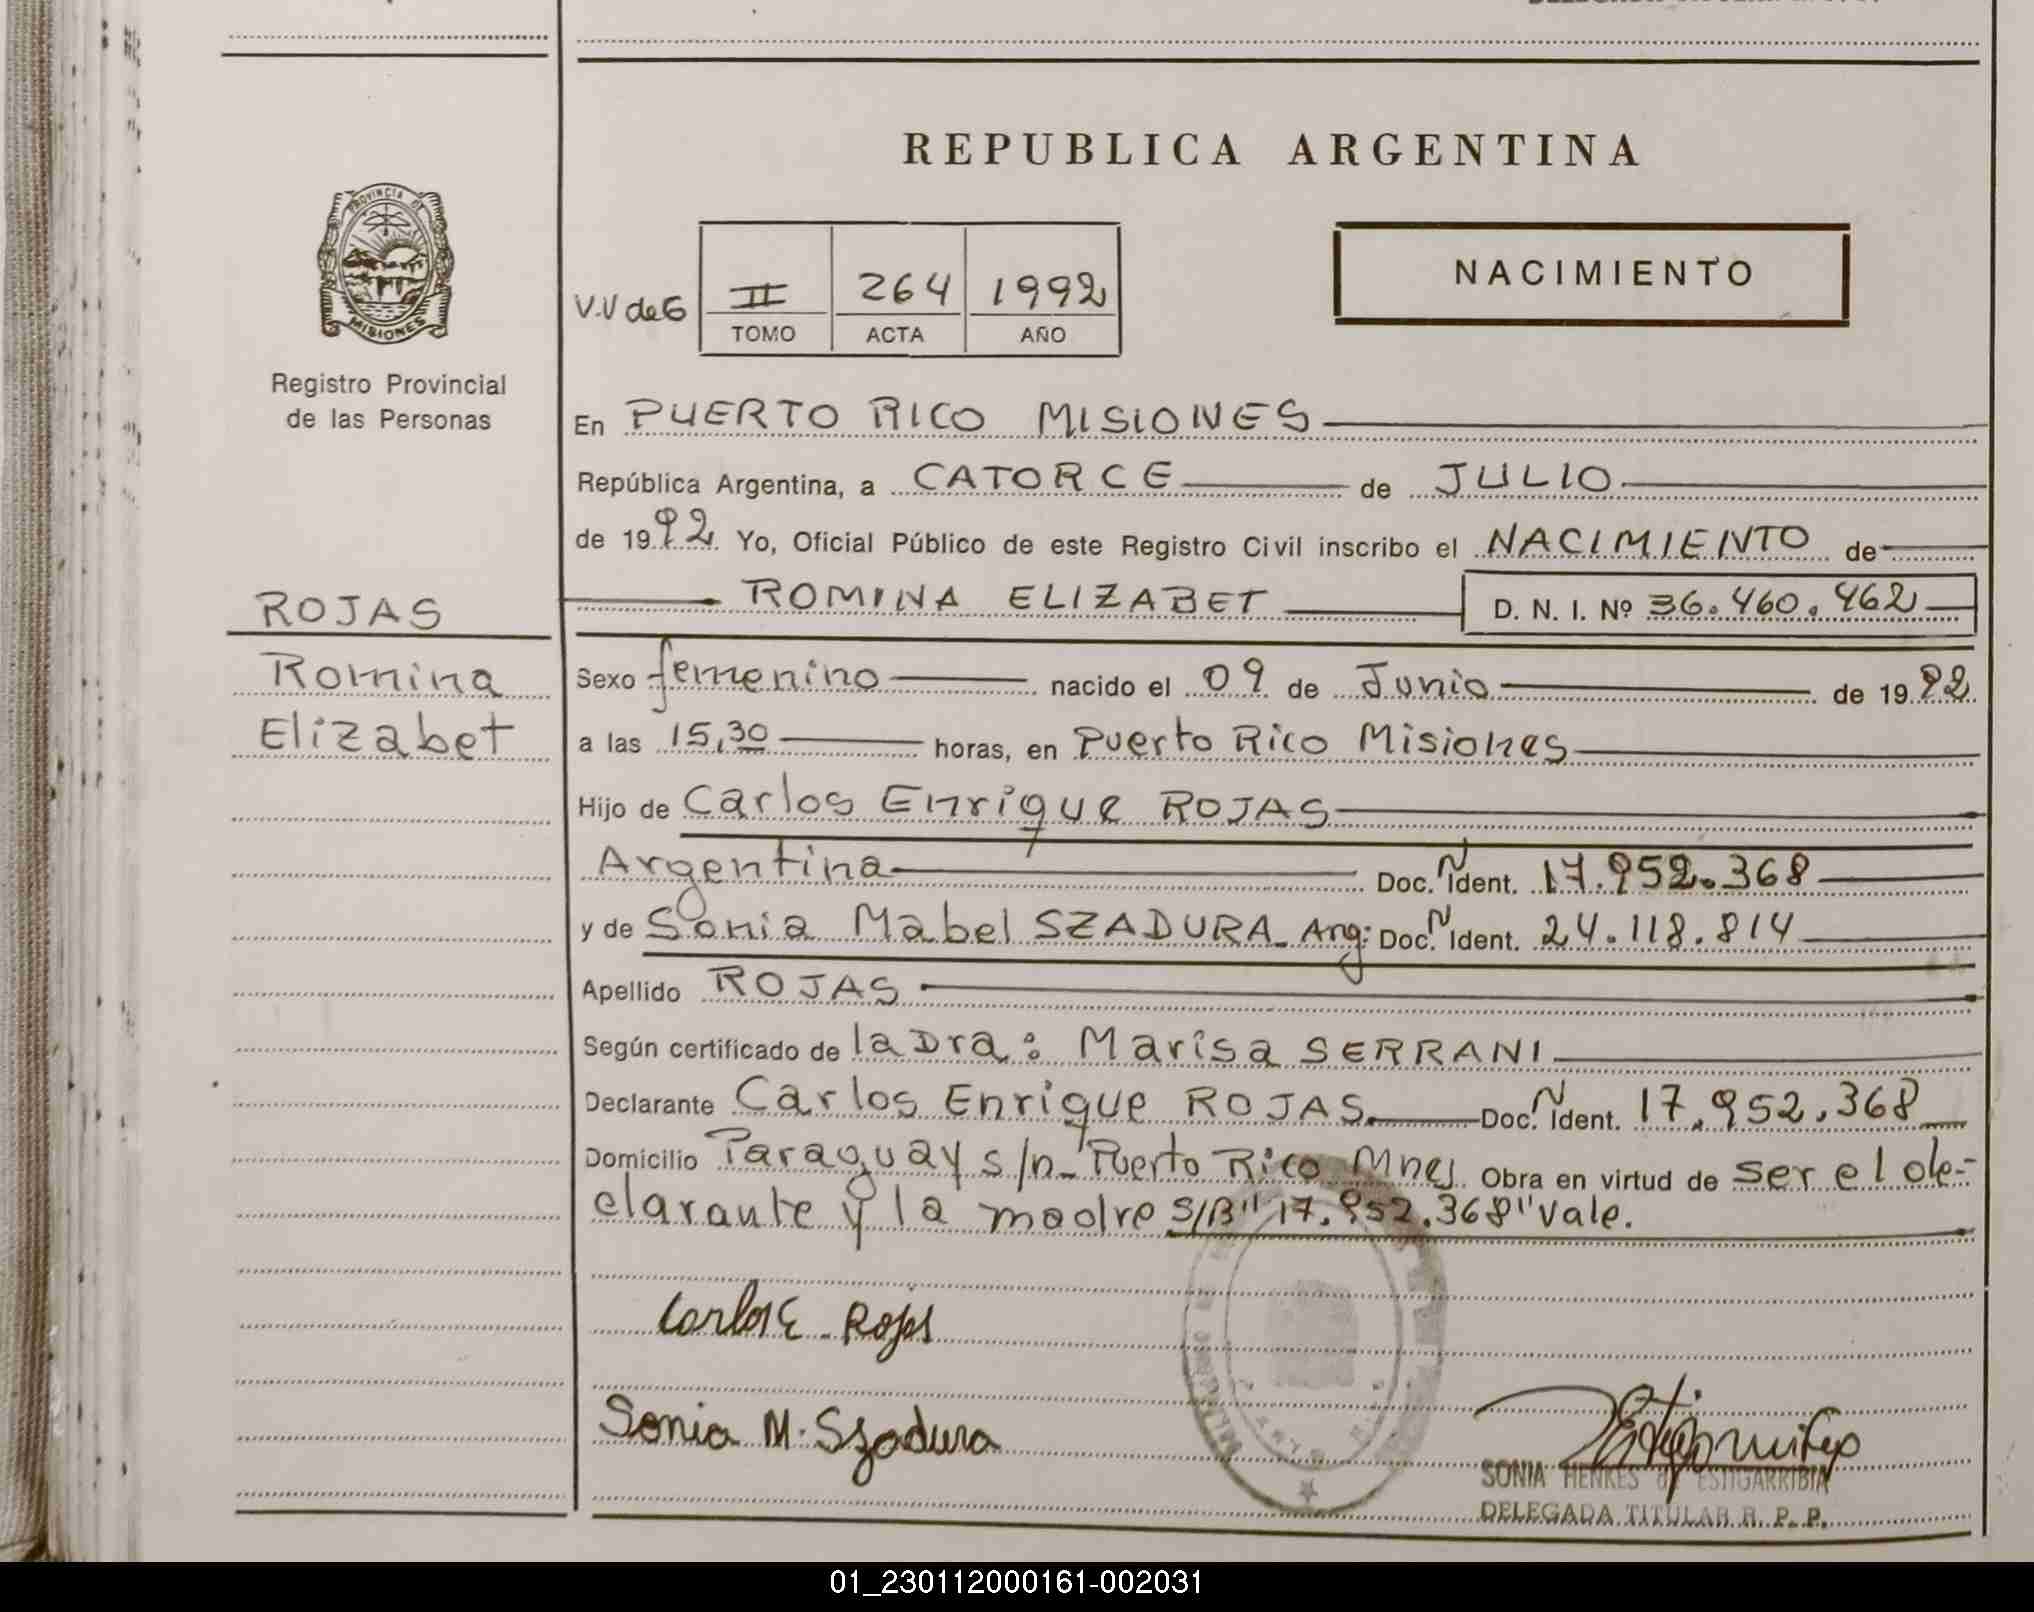 REPUBLICA ARGENTINA
PROVINCIA DE
MISIONES
Registro Provincial
de las Personas
V.V de G
II 264 1992
TOMO ACTA AÑO
NACIMIENTO
En PUERTO RICO MISIONES
República Argentina, a CATORCE de JULIO
de 1992 Yo, Oficial Público de este Registro Civil inscribo el NACIMIENTO de
ROMINA ELIZABET D. N. I. Nº 36.460.462
ROJAS
Romina
Elizabet
Sexo femenino nacido el 09 de Junio de 1992
a las 15,30 horas, en Puerto Rico Misiones
Hijo de Carlos Enrique ROJAS
Argentina Doc. N Ident. 17.952.368
y de Sonia Mabel SZADURA Arg: Doc. N Ident. 24.118.814
Apellido ROJAS
Según certificado de la Dra: Marisa SERRANI
Declarante Carlos Enrique ROJAS. Doc. N Ident. 17.952.368
Domicilio Paraguay s/n- Puerto Rico Mnes Obra en virtud de ser el de-
clarante y la madre S/B" 17.952.368" Vale.
Carlos E. Rojas
Sonia M. Szadura
SONIA HENKES de ESTIGARRIBIA
DELEGADA TITULAR R. P. P.
01_230112000161-002031